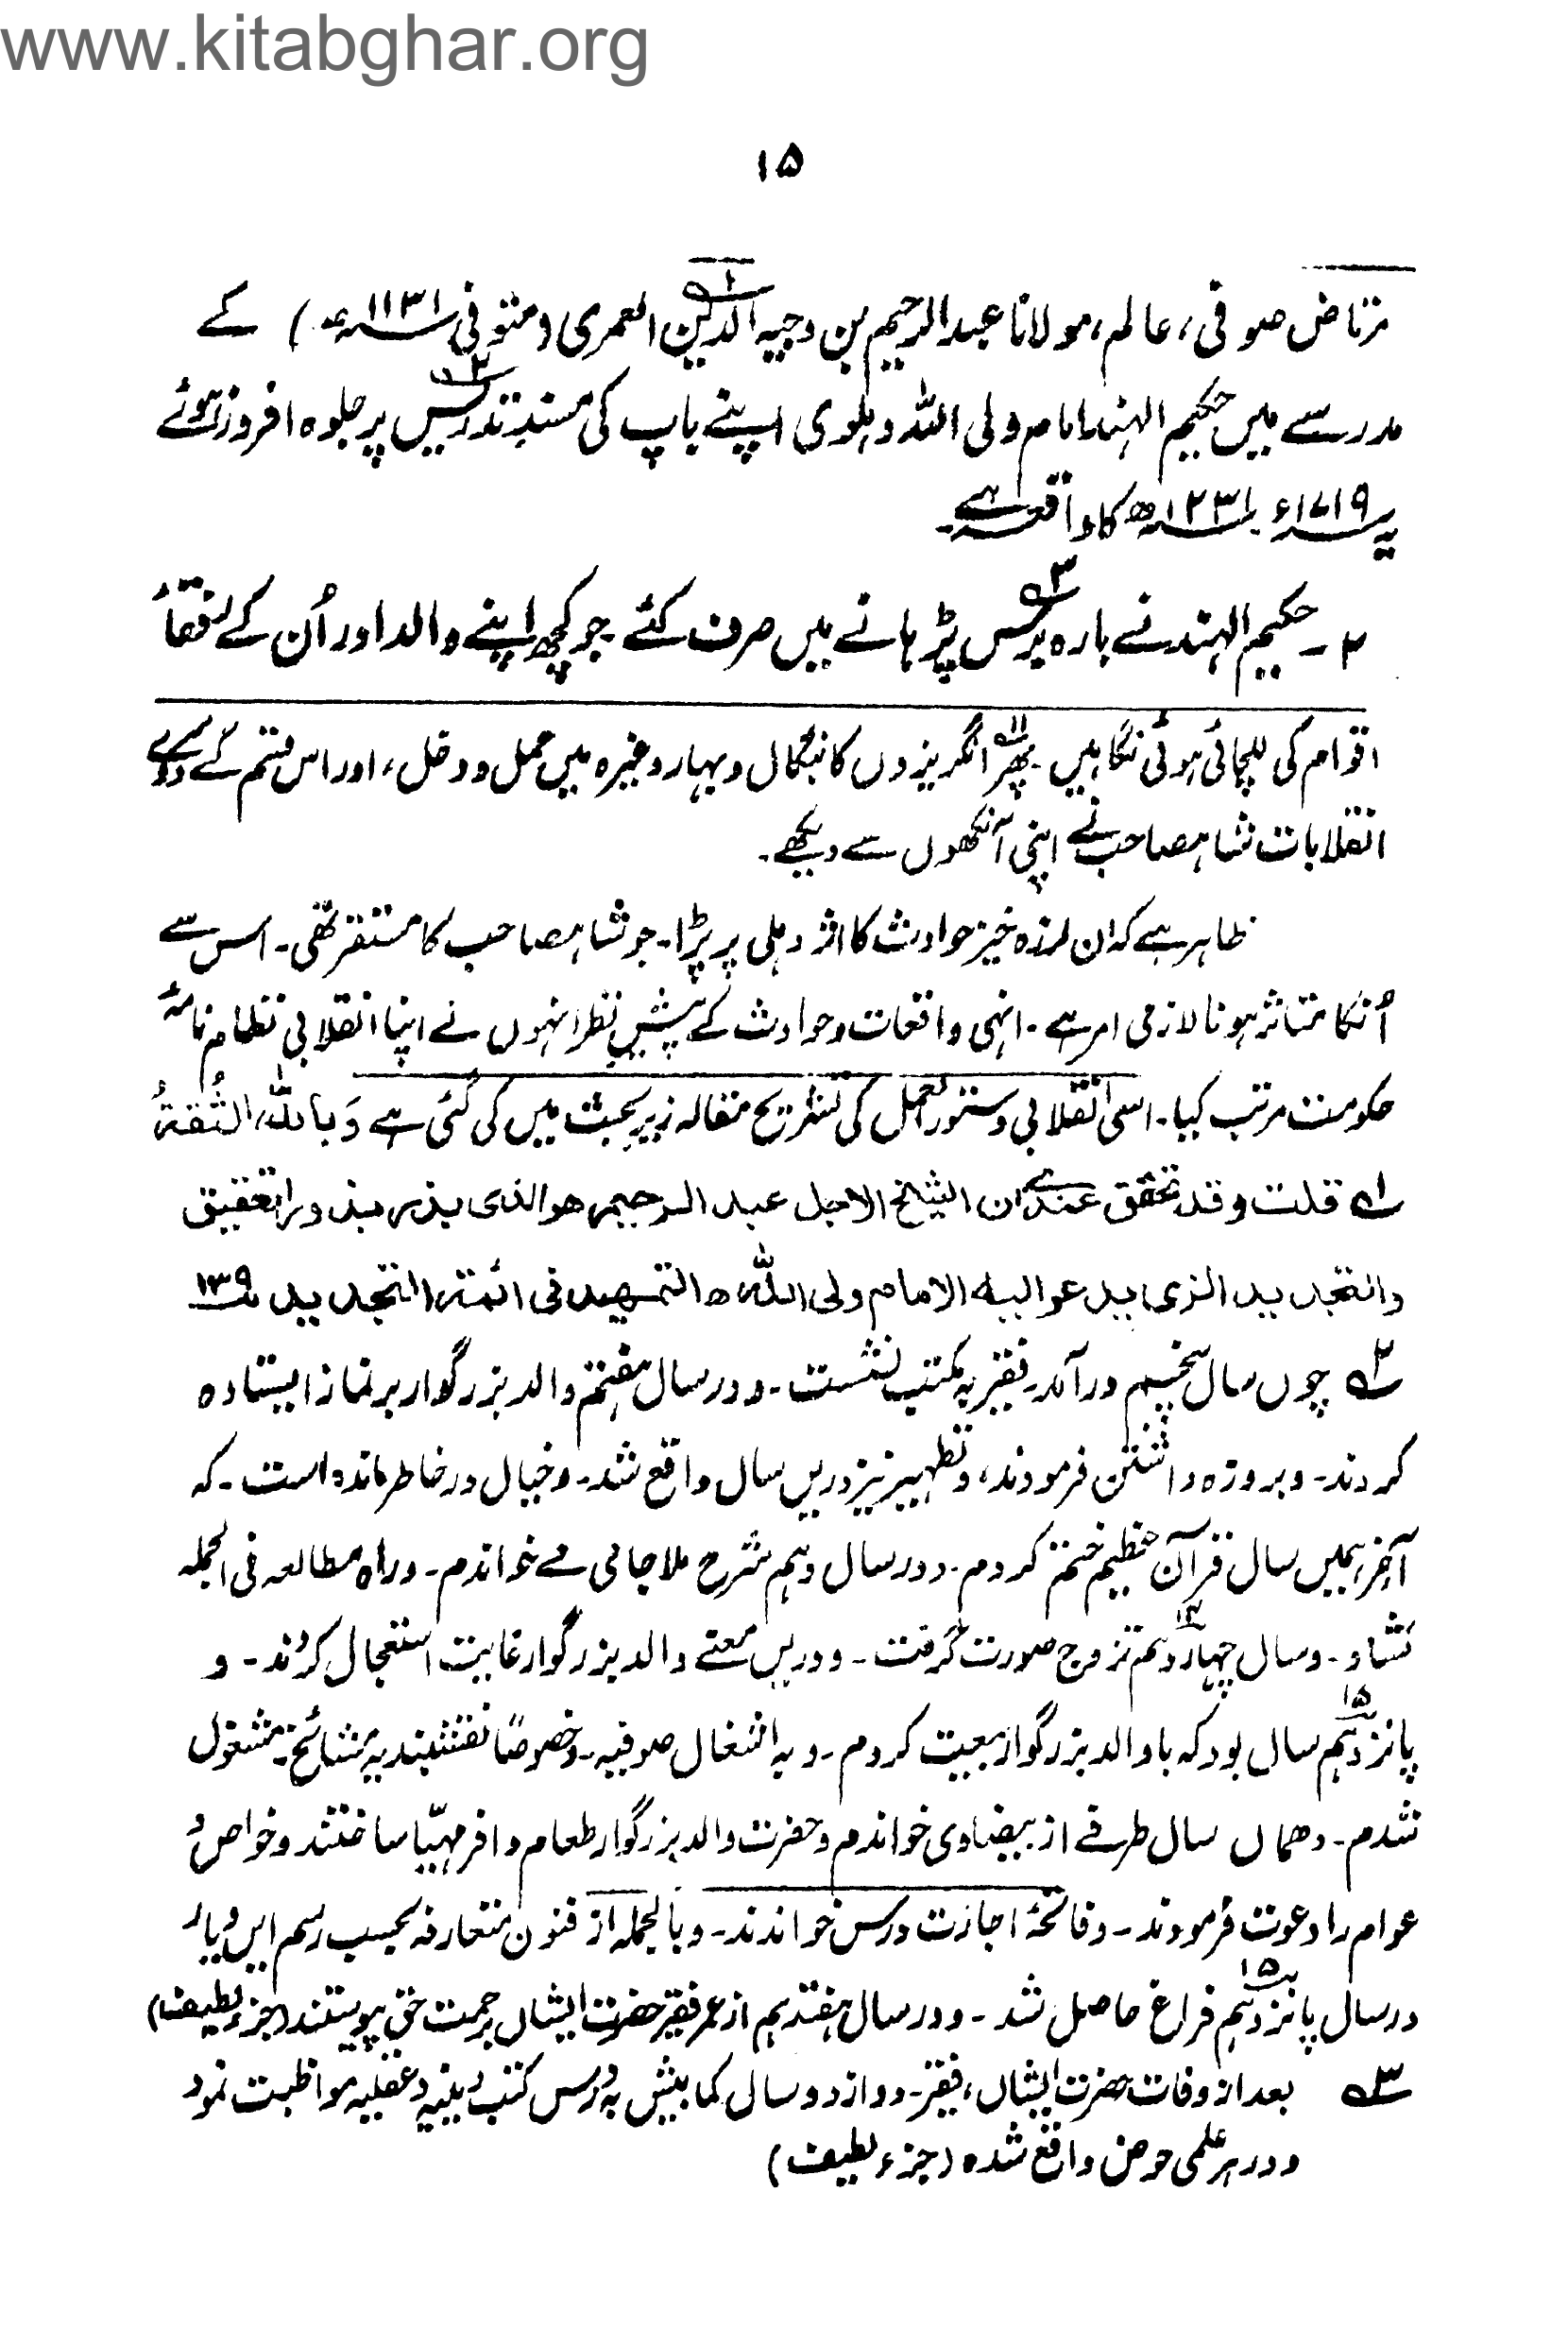 www.kitabghar.org
۱۵
مرتاض صوفی، عالم، مولانا عبدالرحیم بن وجیہ الدین العمری (متوفی ۱۱۳۱ھ) کے
مدرسے میں حکیم الہند امام ولی اللہ دہلوی اپنے باپ کی مسندِ تدریس پر جلوہ افروز ہوئے
یہ ۱۷۱۹ء ۔ ۱۲۳۱ھ کا واقعہ ہے۔
۲ ۔ حکیم الہند نے بارہ برس پڑہانے میں صرف کئے ۔ جو کچھ اپنے والد اور اُن کے رفقاءُ
اقوام کی للچائی ہوئی نگاہیں ۔ پھر انگریزوں کا بنگال و بہار وغیرہ میں عمل و دخل، اور اس قسم کے دوسرے
انقلابات شاہصاحب نے اپنی آنکھوں سے دیکھے ۔
ظاہر ہے کہ ان لرزہ خیز حوادث کا اثر دہلی پر پڑا ۔ جو شاہصاحب کا مستقر تھی ۔ اس سے
اُنکا متاثر ہونا لازمی امر ہے ۔ انہی واقعات و حوادث کے پیشِ نظر انہوں نے اپنا انقلابی نظام نامۂ
حکومت مرتب کیا ۔ اسی انقلابی دستور العمل کی تشریح مقالہ زیرِ بحث میں کی گئی ہے وَباللہ الثقۃُ
۱ قلت وقد تحقق عندی ان الشیخ الاجل عبد الرحیم ھو الذی بذر بذور التحقیق
والتجدید الذی یدعو الیہ الامام ولی اللہ ھ التمہید فی ائمۃ التجدید ص ۱۳۹
۲ چوں سال پنجم درآمد فقیر بہ مکتب نشست ۔ و در سال ہفتم والد بزرگوار بر نماز ایستادہ
کردند ۔ و بروزہ داشتن فرمودند، و تطہیر نیز دریں سال واقع شد ۔ و خیال در خاطر ماندہ است ۔ کہ
آخرِ ہمیں سال قرآن عظیم ختم کردم ۔ و در سال دہم شرح ملا جامی مے خواندم ۔ و راہ مطالعہ فی الجملہ
کشاد ۔ و سال چہاردہم ۱۴ تزوج صورت گرفت ۔ و دریں معنے والد بزرگوار غایت استعجال کردند ۔ و
پانزدہم ۱۵ سال بود کہ با والد بزرگوار بیعت کردم ۔ و بہ اشغال صوفیہ ۔ و خصوصاً نقشبندیہ مشائخ ۔ مشغول
شدم ۔ و ہماں سال طرفے از بیضاوی خواندم و حضرت والد بزرگوار طعام وافر مہیّا ساختند و خواص و
عوام را دعوت فرمودند ۔ و فاتحۂ اجازت درس خواندند ۔ و بالجملہ از فنون متعارفہ بحسب رسم ایں دیار
در سال پانزدہم ۱۵ فراغ حاصل شد ۔ و در سال ہفتدہم از عمر فقیر حضرت ایشاں برحمت حق پیوستند (جزء لطیف)
۳ بعد از وفات حضرت ایشاں، فقیر ۔ دوازدہ سال کمابیش بہ درس کتب دینیہ و عقلیہ مواظبت نمود
و در ہر علمی خوض واقع شدہ (جزء لطیف)